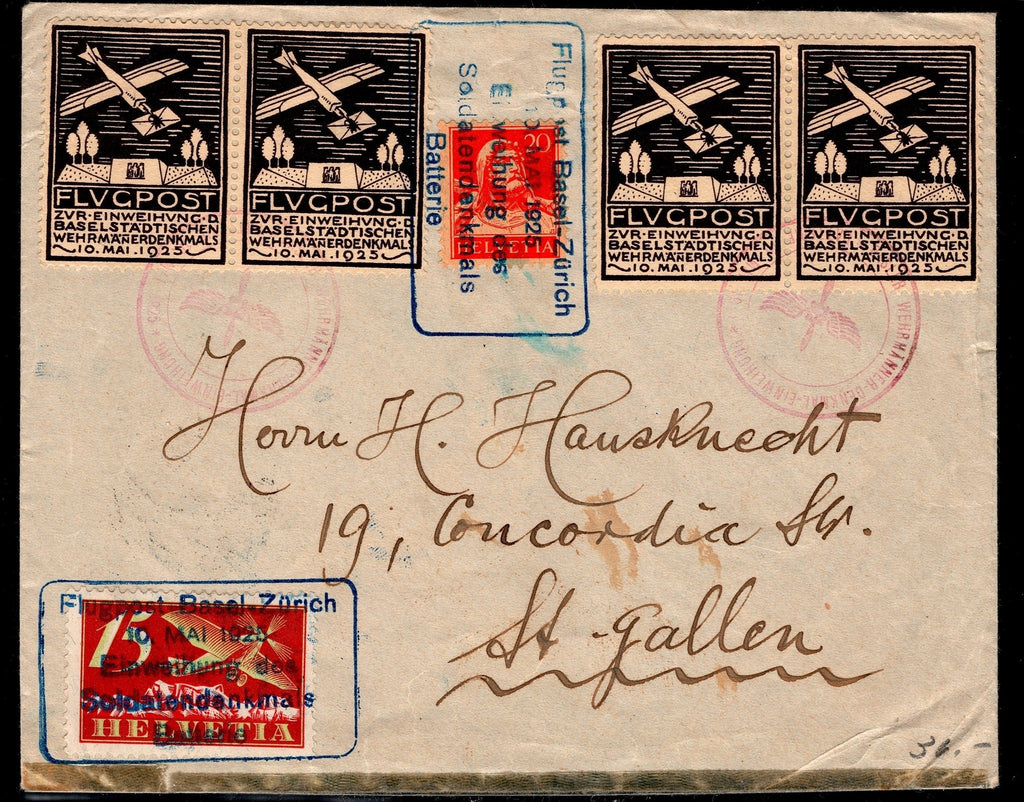 FLVGPOST
ZVR·EINWEIHVNG·D
BASELSTÄDTISCHEN
WEHRMÄÑERDENKMALS
~10. MAI.1925~
FLVGPOST
ZVR·EINWEIHVNG·D
BASELSTÄDTISCHEN
WEHRMÄÑERDENKMALS
~10. MAI.1925~
Flugpost Basel-Zürich
10. MAI 1925
Einweihung des
Soldatendenkmals
Batterie
20
HELVETIA
FLVGPOST
ZVR·EINWEIHVNG·D
BASELSTÄDTISCHEN
WEHRMÄÑERDENKMALS
~10. MAI.1925~
FLVGPOST
ZVR·EINWEIHVNG·D
BASELSTÄDTISCHEN
WEHRMÄÑERDENKMALS
~10. MAI.1925~
WEHRMÄNNER-DENKMAL-EINWEIHUNG
Herrn H. Hausknecht
19, Concordia Str.
St. Gallen
Flugpost Basel-Zürich
10. MAI 1925
Einweihung des
Soldatendenkmals
Batterie
15
HELVETIA